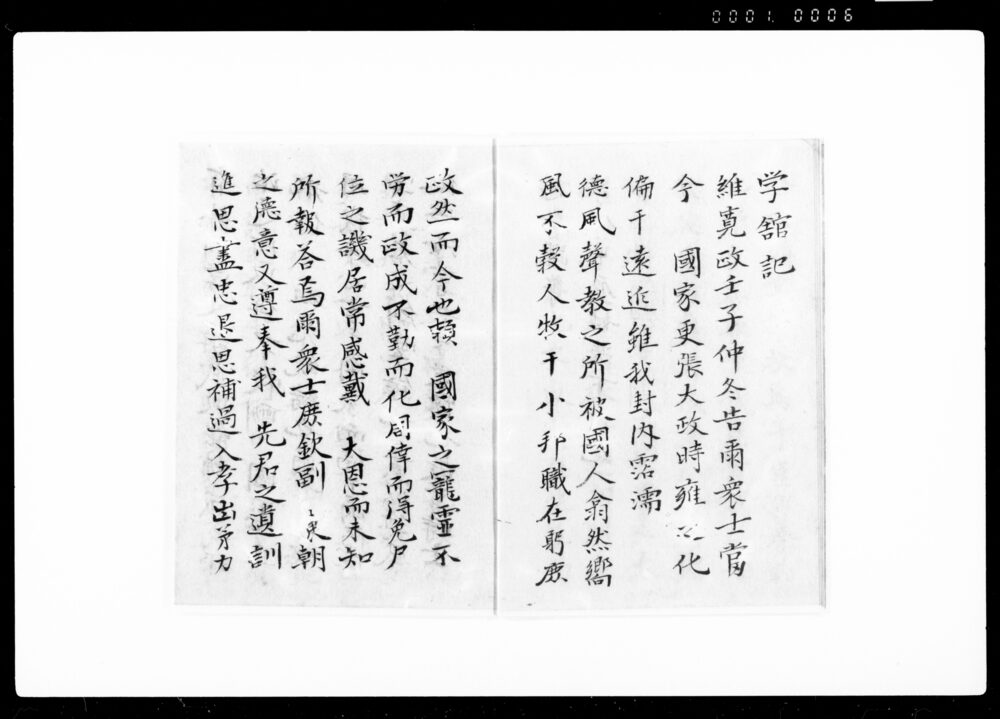 0001.0006
学舘記
維寛政壬子仲冬告爾衆士當
今　國家更張大政時雍 化
偏于遠近雖我封内霑濡
德風聲教之所被國人翕然嚮
風不穀人牧于小邦職在躬庶
政然而今也頼　國家之寵靈不
労而政成不勤而化周倖而得免尸
位之譏居常感戴　大恩而未知
所報答焉爾衆士庶欽副　東朝
之德意又遵奉我　先君之遺訓
進思盡忠退思補過入孝出弟力